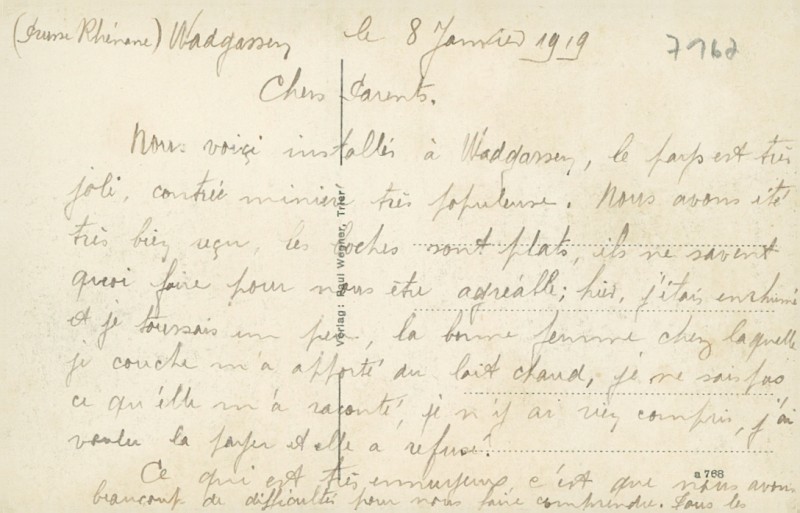 (Prusse Rhénane) Wadgassen le 8 Janvier 1919
7967
Chers Parents.
Nous voiçi installés à Wadgassen, le pays est très
joli, contrée minière très populeuse. Nous avons été
très bien reçu, les boches sont plats, ils ne savent
quoi faire pour nous être agréable; hier, j'étais enrhumé
et je toussais un peu, la bonne femme chez laquelle
je couche m'a apporté du lait chaud, je ne sais pas
ce qu'elle m'a raconté, je n'y ai rien compris, j'ai
voulu la payer et elle a refusé!
Ce qui est très ennuyeux c'est que nous avons
beaucoup de difficultés pour nous faire comprendre. Tous les
Verlag: Paul Wagner, Trier
a 768